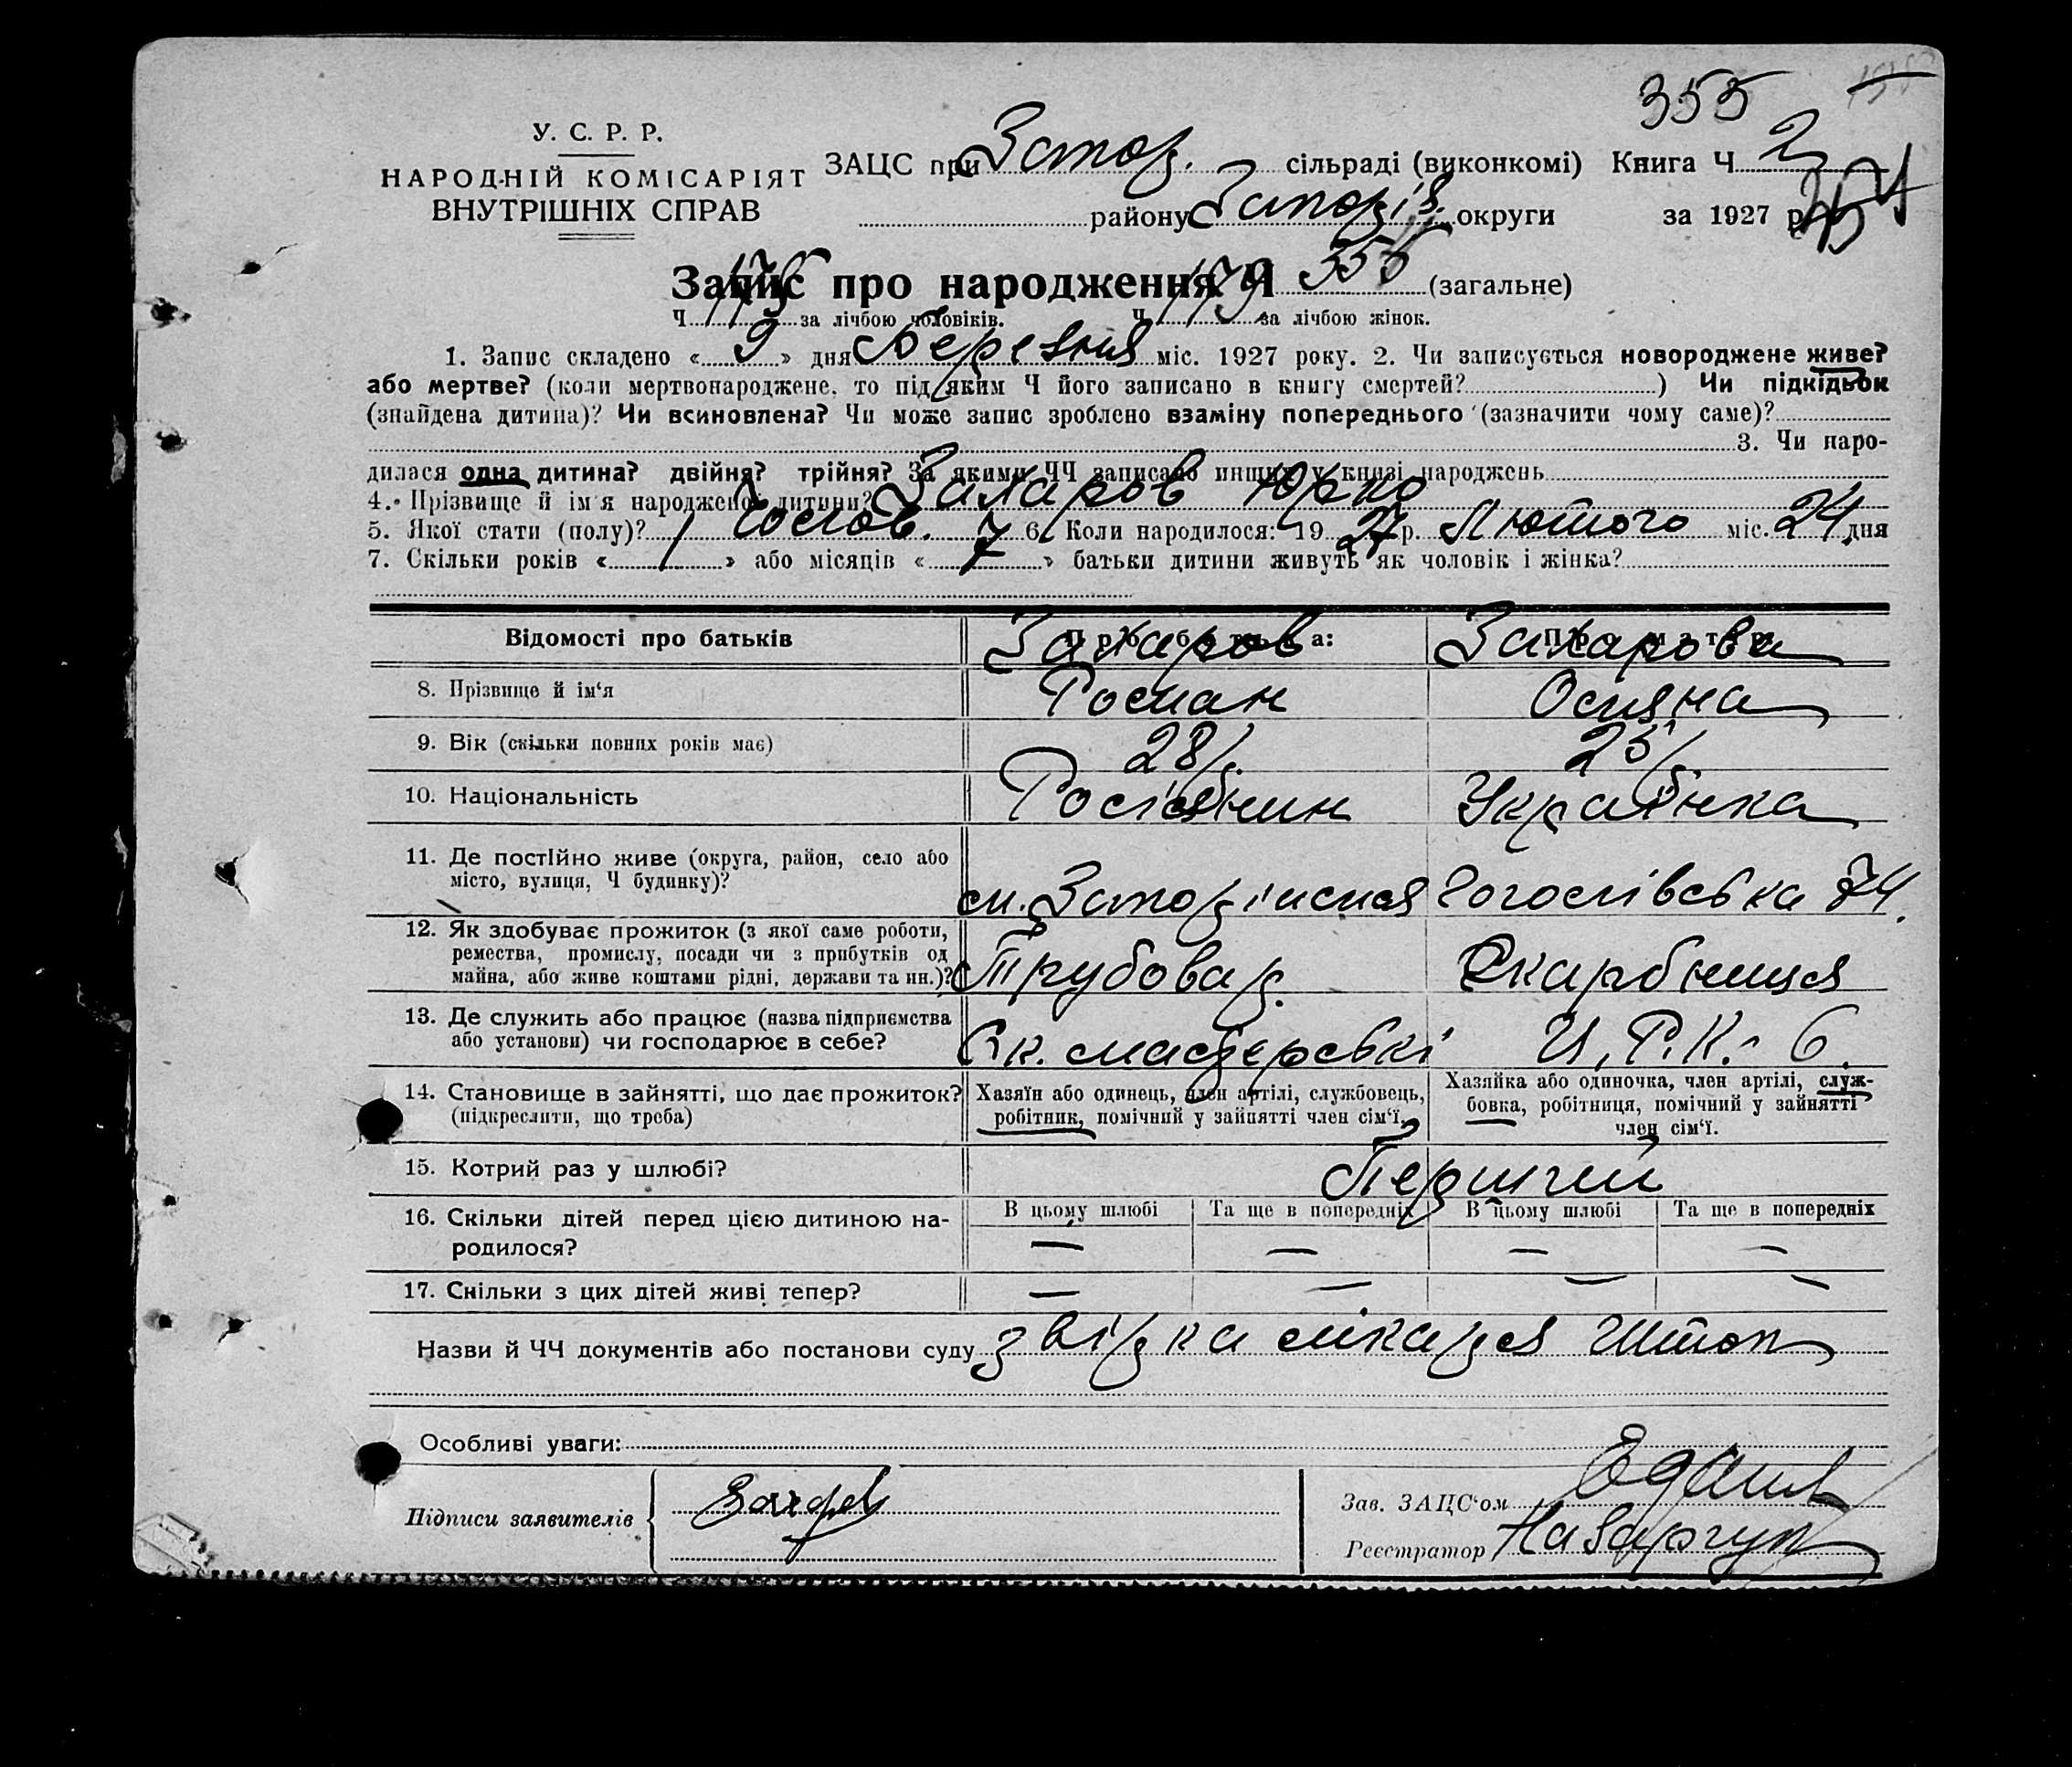 355
У. С. Р. Р.
НАРОДНІЙ КОМІСАРІЯТ
ВНУТРІШНІХ СПРАВ
ЗАЦС при Запоріз. сільраді (виконкомі) Книга Ч 2
району Запорів. округи за 1927 р. 354
Запис про народження Ч 355 (загальне)
Ч за лічбою чоловіків. Ч 179 за лічбою жінок.
1. Запис складено « 9 » дня Березня міс. 1927 року. 2. Чи записується новороджене живе?
або мертве? (коли мертвонароджене, то під яким Ч його записано в книгу смертей? ) Чи підкідьок
(знайдена дитина)? Чи всиновлена? Чи може запис зроблено взаміну попереднього (зазначити чому саме)?
3. Чи наро-
дилася одна дитина? двійня? трійня? За якими ЧЧ записано инших у книзі народжень
4. Прізвище й ім'я народженої дитини? Захаров Юрко
5. Якої стати (полу)? Чолов. 6. Коли народилося: 1927 р. Лютого міс. 24 дня
7. Скільки років « / » або місяців « 7 » батьки дитини живуть як чоловік і жінка?
Відомості про батьків
Про батька:
Про матір:
8. Прізвище й ім'я
Захаров Роман
Захарова
9. Вік (скільки повних років має)
28
23
10. Національність
Росіянин
Українка
11. Де постійно живе (округа, район, село або
місто, вулиця, Ч будинку)?
м. Запоріжжя Гоголівська 74.
12. Як здобуває прожиток (з якої саме роботи,
ремества, промислу, посади чи з прибутків од
майна, або живе коштами рідні, держави та ин.)?
Трубовар.
Скарбниця
13. Де служить або працює (назва підприємства
або установи) чи господарює в себе?
Вк. майстерські
Ц. Р. К. 6.
14. Становище в зайнятті, що дає прожиток?
(підкреслити, що треба)
Хазяїн або одинець, член артілі, службовець,
робітник, помічний у зайнятті член сім'ї.
Хазяйка або одиночка, член артілі, служ-
бовка, робітниця, помічний у зайнятті
член сім'ї.
15. Котрий раз у шлюбі?
Перший
16. Скільки дітей перед цією дитиною на-
родилося?
В цьому шлюбі Та ще в попередніх В цьому шлюбі Та ще в попередніх
— — — —
17. Скільки з цих дітей живі тепер?
— — — —
Назви й ЧЧ документів або постанови суду звізка лікаря Штоп
Особливі уваги:
Підписи заявителів
Зав. ЗАЦС'ом
Реєстратор Назарчук